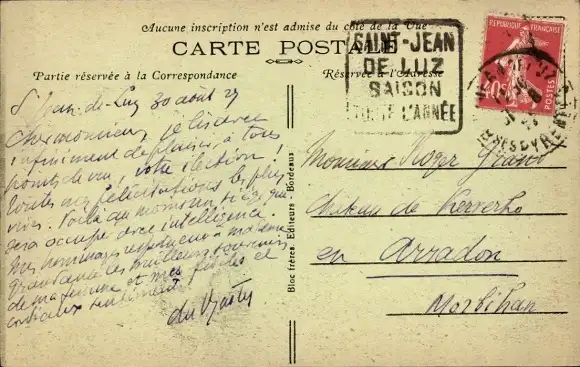 Aucune inscription n'est admise du côté de la Vue
CARTE POSTALE
Partie réservée à la Correspondance
Réservée à l'Adresse
SAINT-JEAN
DE LUZ
SAISON
TOUTE L'ANNÉE
REPUBLIQUE FRANÇAISE
POSTES
St Jean-de-Luz 30 août 27
Cher monsieur, je
infiniment de plaisir, à tous
points de vue, votre élection,
toutes mes félicitations les plus
vives. Voilà du moins un siège qui
sera occupé avec intelligence.
Mes hommages respectueux à madame
les meilleurs souvenirs
de ma femme et mes fidèles et
cordiaux sentiments
du
Bloc frères Editeurs - Bordeaux
Monsieur Roger Grand
Château de Kerverho
en Arradon
Morbihan